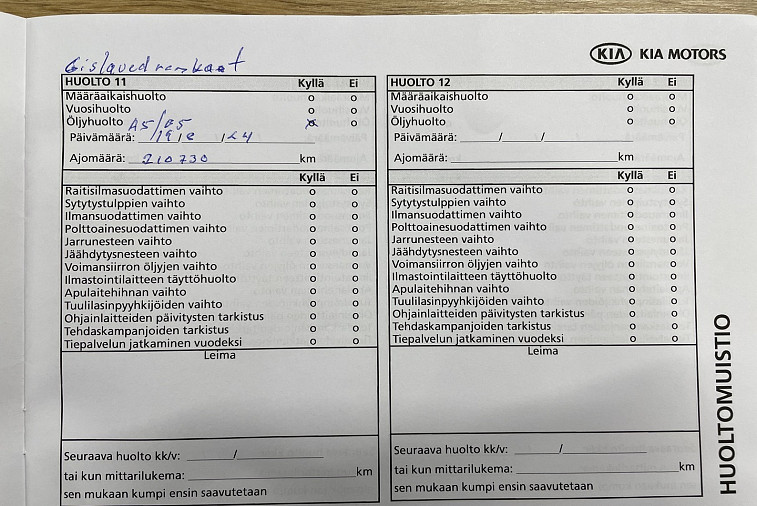 KIA KIA MOTORS
Gislaved renkaat
HUOLTO 11 Kyllä Ei
Määräaikaishuolto o o
Vuosihuolto o o
Öljyhuolto A5/B5 x o
Päivämäärä: / /24
Ajomäärä: 210730 km
Kyllä Ei
Raitisilmasuodattimen vaihto o o
Sytytystulppien vaihto o o
Ilmansuodattimen vaihto o o
Polttoainesuodattimen vaihto o o
Jarrunesteen vaihto o o
Jäähdytysnesteen vaihto o o
Voimansiirron öljyjen vaihto o o
Ilmastointilaitteen täyttöhuolto o o
Apulaitehihnan vaihto o o
Tuulilasinpyyhkijöiden vaihto o o
Ohjainlaitteiden päivitysten tarkistus o o
Tehdaskampanjoiden tarkistus o o
Tiepalvelun jatkaminen vuodeksi o o
Leima
Seuraava huolto kk/v: /
tai kun mittarilukema: km
sen mukaan kumpi ensin saavutetaan
HUOLTO 12 Kyllä Ei
Määräaikaishuolto o o
Vuosihuolto o o
Öljyhuolto o o
Päivämäärä: / /
Ajomäärä: km
Kyllä Ei
Raitisilmasuodattimen vaihto o o
Sytytystulppien vaihto o o
Ilmansuodattimen vaihto o o
Polttoainesuodattimen vaihto o o
Jarrunesteen vaihto o o
Jäähdytysnesteen vaihto o o
Voimansiirron öljyjen vaihto o o
Ilmastointilaitteen täyttöhuolto o o
Apulaitehihnan vaihto o o
Tuulilasinpyyhkijöiden vaihto o o
Ohjainlaitteiden päivitysten tarkistus o o
Tehdaskampanjoiden tarkistus o o
Tiepalvelun jatkaminen vuodeksi o o
Leima
Seuraava huolto kk/v: /
tai kun mittarilukema: km
sen mukaan kumpi ensin saavutetaan
HUOLTOMUISTIO